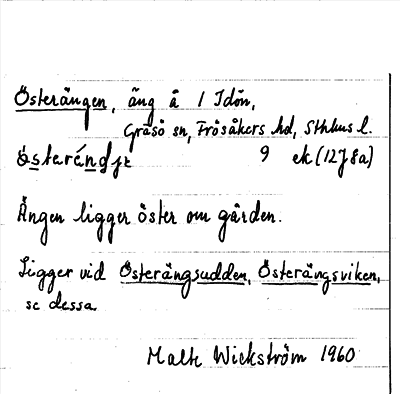 Österängen, äng å 1 Idön,
Gräsö sn, Frösåkers hd, Sthlms l.
9 ek (12J 8a)
Ängen ligger öster om gården.
Ligger vid Österängsudden, Österängsviken,
se dessa
Malte Wickström 1960